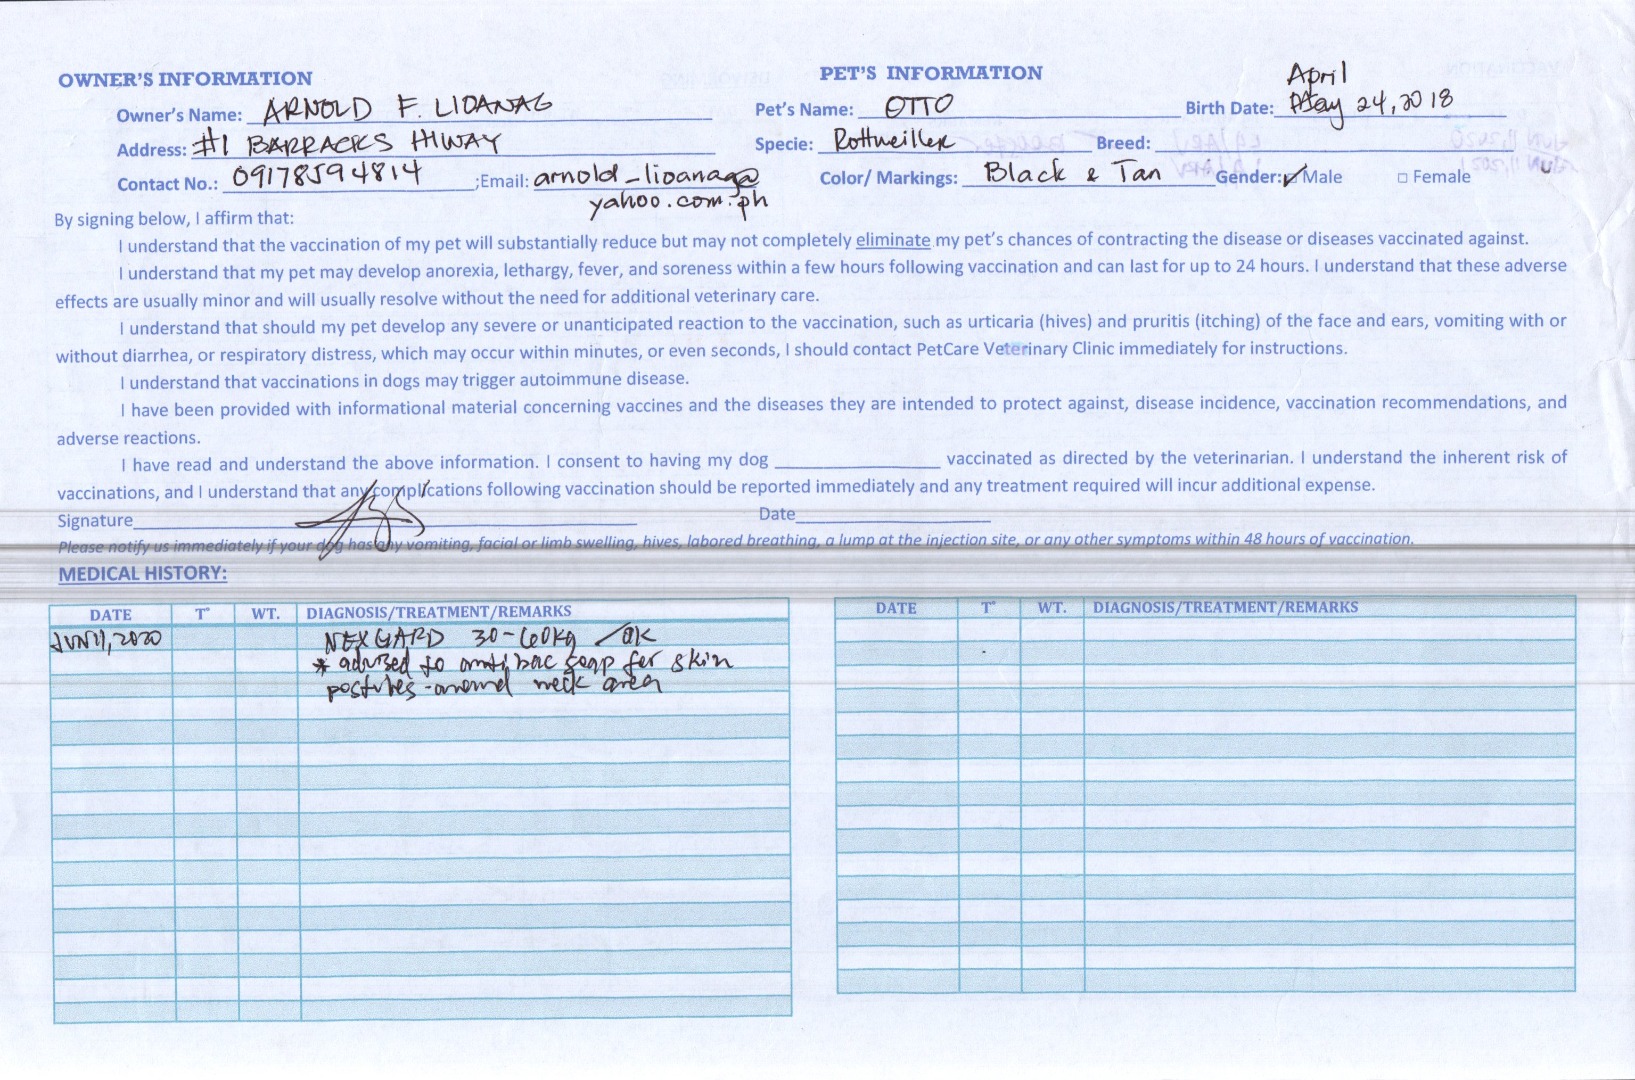 OWNER'S INFORMATION
PET'S INFORMATION
Owner's Name: ARNOLD F. LIOANAG
Pet's Name: OTTO
Birth Date: April May 24, 2018
Address: #1 BARRACKS HIWAY
Specie: Rottweiller Breed:
Contact No.: 09178594814 ;Email: arnold_lioanag@
yahoo.com.ph
Color/ Markings: Black & Tan Gender: ✓ Male □ Female
By signing below, I affirm that:
I understand that the vaccination of my pet will substantially reduce but may not completely eliminate my pet's chances of contracting the disease or diseases vaccinated against.
I understand that my pet may develop anorexia, lethargy, fever, and soreness within a few hours following vaccination and can last for up to 24 hours. I understand that these adverse
effects are usually minor and will usually resolve without the need for additional veterinary care.
I understand that should my pet develop any severe or unanticipated reaction to the vaccination, such as urticaria (hives) and pruritis (itching) of the face and ears, vomiting with or
without diarrhea, or respiratory distress, which may occur within minutes, or even seconds, I should contact PetCare Veterinary Clinic immediately for instructions.
I understand that vaccinations in dogs may trigger autoimmune disease.
I have been provided with informational material concerning vaccines and the diseases they are intended to protect against, disease incidence, vaccination recommendations, and
adverse reactions.
I have read and understand the above information. I consent to having my dog ____ vaccinated as directed by the veterinarian. I understand the inherent risk of
vaccinations, and I understand that any complications following vaccination should be reported immediately and any treatment required will incur additional expense.
Signature____ Date____
Please notify us immediately if your dog has any vomiting, facial or limb swelling, hives, labored breathing, a lump at the injection site, or any other symptoms within 48 hours of vaccination.
MEDICAL HISTORY:
DATE T° WT. DIAGNOSIS/TREATMENT/REMARKS
DATE T° WT. DIAGNOSIS/TREATMENT/REMARKS
JUN 11, 2020 NEXGARD 30-60kg /
* advised to antibac soap for skin
neck area